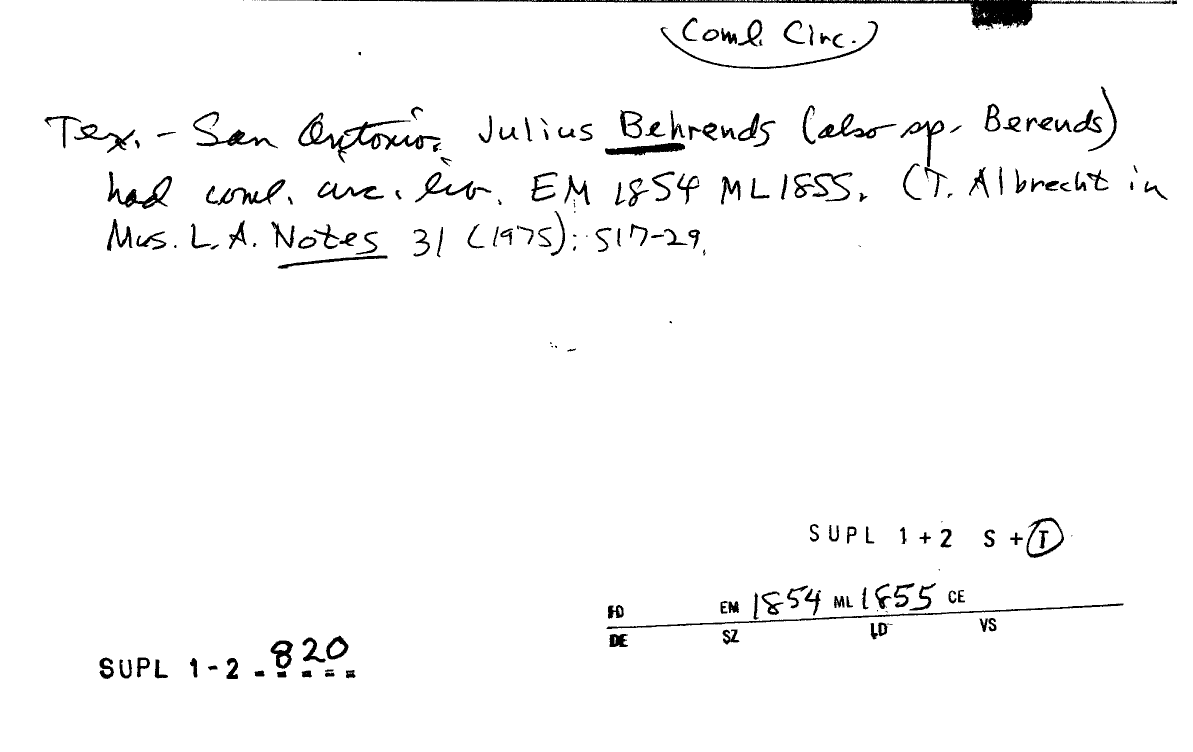 Coml. Circ.
Tex. - San Antonio. Julius Behrends (also sp. Berends)
had coml. circ. lib. EM 1854 ML 1855. (T. Albrecht in
Mus. L. A. Notes 31 (1975): 517-29.
SUPL 1+2 S + T
FD EM 1854 ML 1855 CE
DE SZ LD VS
SUPL 1-2 - 820